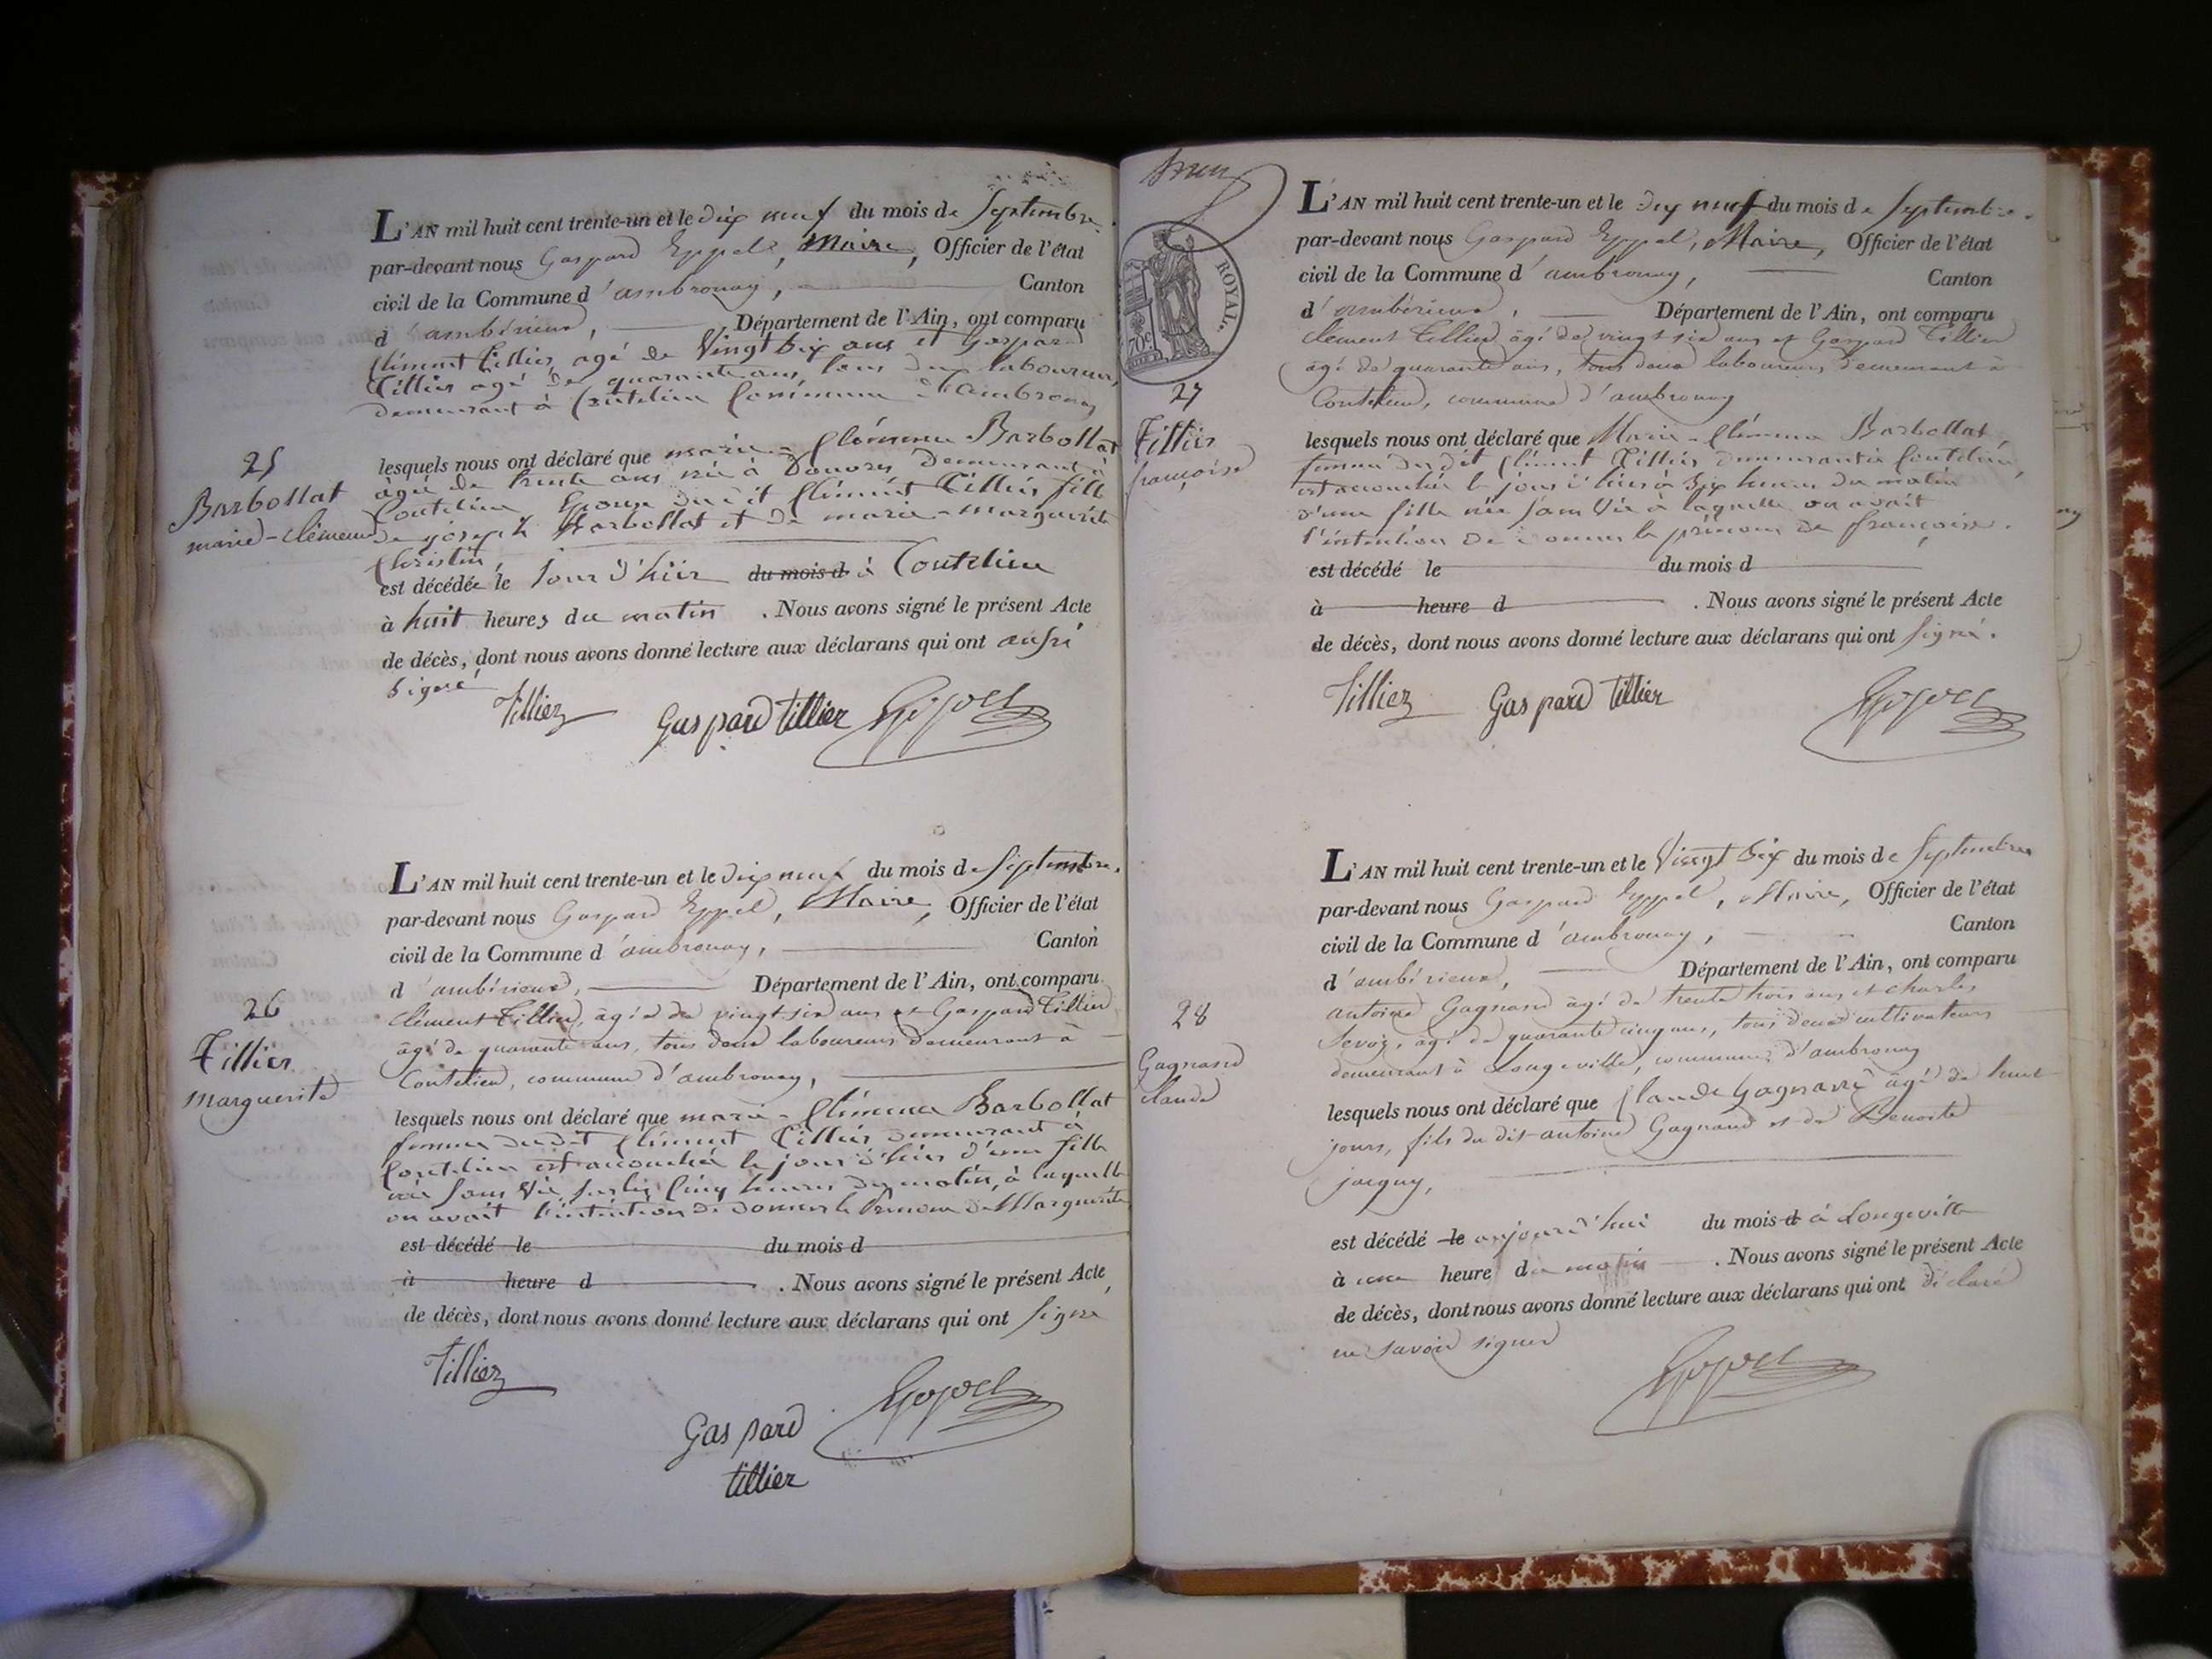 L'AN mil huit cent trente-un et le dix neuf du mois de Septembre.
par-devant nous Gaspard Eppel, Maire, Officier de l'état
civil de la Commune d'ambronay, Canton
d'ambérieux, Département de l'Ain, ont comparu
Clément Tillier, âgé de Vingt Six ans et Gaspard
Tillier agé de quarante ans, tous deux laboureurs,
demeurant à Coutelieu Commune d'ambronay
25
Barbollat
marie-clémence
lesquels nous ont déclaré que marie-Clémence Barbollat
âgée de trente ans née à Douvres demeurant à
Coutelieu Epouse du dit Clément Tillier fille
de joseph Barbollat et de marie-marguerite
Christin,
est décédée le Jour d'hier du mois d à Coutelieu
à huit heures du matin. Nous avons signé le présent Acte
de décès, dont nous avons donné lecture aux déclarans qui ont aussi
signé
Tillier Gaspard tillier Eppel
L'AN mil huit cent trente-un et le dix neuf du mois de Septembre.
par-devant nous Gaspard Eppel, Maire, Officier de l'état
civil de la Commune d'ambronay, Canton
d'ambérieux, Département de l'Ain, ont comparu
26
Tillier
Marguerite
Clément Tillier, âgé de vingt six ans et Gaspard Tillier
âgé de quarante ans, tous deux laboureurs demeurant à
Coutelieu, commune d'ambronay,
lesquels nous ont déclaré que marie-Clémence Barbollat
femme du dit Clément Tillier demeurant à
Coutelieu est accouchée le jour d'hier d'une fille
née sans vie sur les Cinq heures du matin, à laquelle
on avait l'intention de donner le Prénom de Marguerite
est décédé le du mois d
à heure d . Nous avons signé le présent Acte,
de décès, dont nous avons donné lecture aux déclarans qui ont signé
Tillier
Gaspard Eppel
tillier
ROYAL.
70c
L'AN mil huit cent trente-un et le dix neuf du mois de Septembre.
par-devant nous Gaspard Eppel, Maire, Officier de l'état
civil de la Commune d'ambronay, Canton
d'ambérieux, Département de l'Ain, ont comparu
Clément Tillier, âgé de vingt six ans et Gaspard Tillier
âgé de quarante ans, tous deux laboureurs, demeurant à
Coutelieu, commune d'ambronay
27
Tillier
françoise
lesquels nous ont déclaré que Marie-Clémence Barbollat,
femme du dit Clément Tillier demeurant à Coutelieu,
est accouchée le jour d'hier à Six heures du matin
d'une fille née sans vie à laquelle on avait
l'intention de donner le prénom de françoise.
est décédé le du mois d
à heure d . Nous avons signé le présent Acte
de décès, dont nous avons donné lecture aux déclarans qui ont signé.
Tillier Gaspard tillier Eppel
L'AN mil huit cent trente-un et le Vingt Six du mois de Septembre
par-devant nous Gaspard Eppel, Maire, Officier de l'état
civil de la Commune d'ambronay, Canton
d'ambérieux, Département de l'Ain, ont comparu
28
Gagnand
claude
antoine Gagnand âgé de trente trois ans et charles
Sevoz, âgé de quarante cinq ans, tous deux cultivateurs
demeurant à Longeville, commune d'ambronay
lesquels nous ont déclaré que Claude Gagnand âgé de huit
jours, fils du dit antoine Gagnand et de Benoite
est décédé le aujourd'hui du mois d à Longeville
à une heure du matin. Nous avons signé le présent Acte
de décès, dont nous avons donné lecture aux déclarans qui ont déclaré
ne savoir signer
Eppel